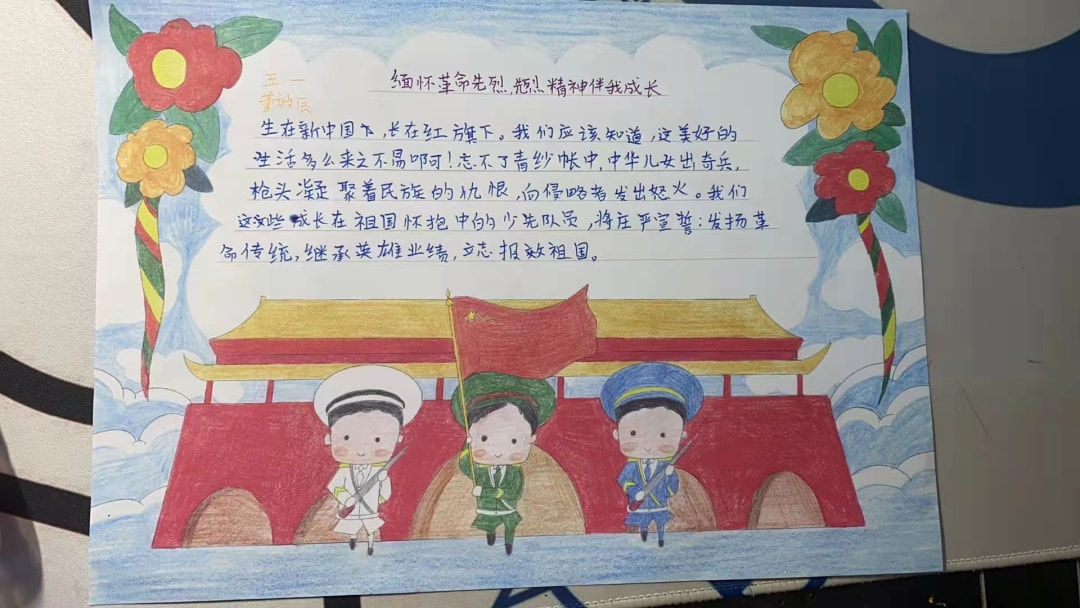 缅怀革命先烈,先烈精神伴我成长
五一
生在新中国下,长在红旗下。我们应该知道,这美好的
生活多么来之不易啊!忘不了青纱帐中,中华儿女出奇兵,
枪头凝聚着民族的仇恨,向侵略者发出怒火。我们
这些成长在祖国怀抱中的少先队员,将庄严宣誓:发扬革
命传统,继承英雄业绩,立志报效祖国。